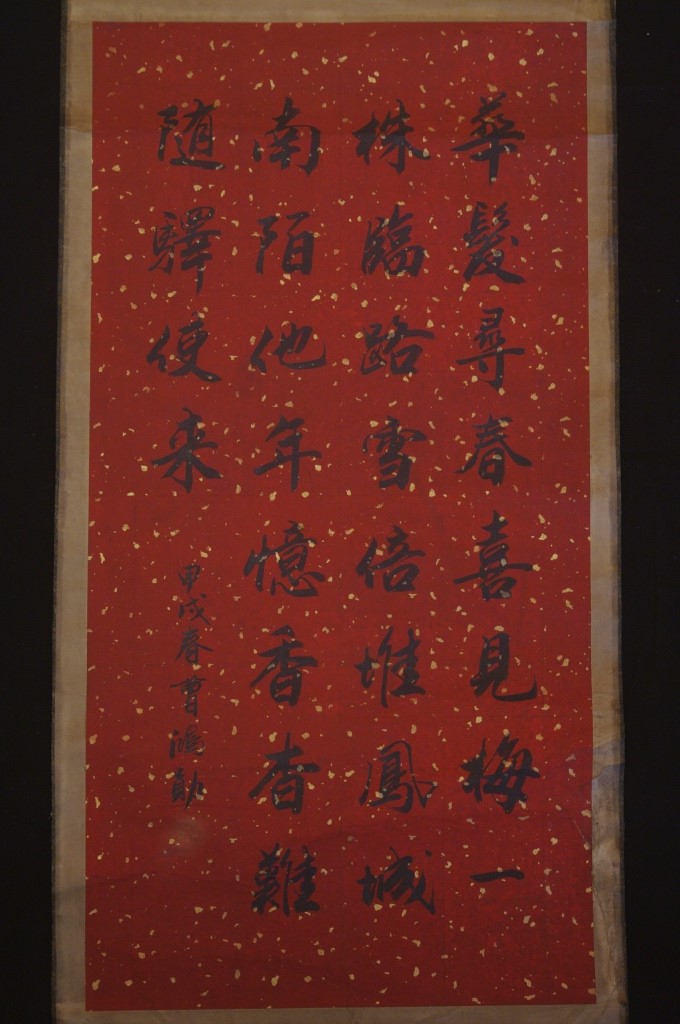 華髮尋春喜見梅一
株臨路雪倍堆鳳城
南陌他年憶香杳難
随驛使来
甲戌春曹鴻勛